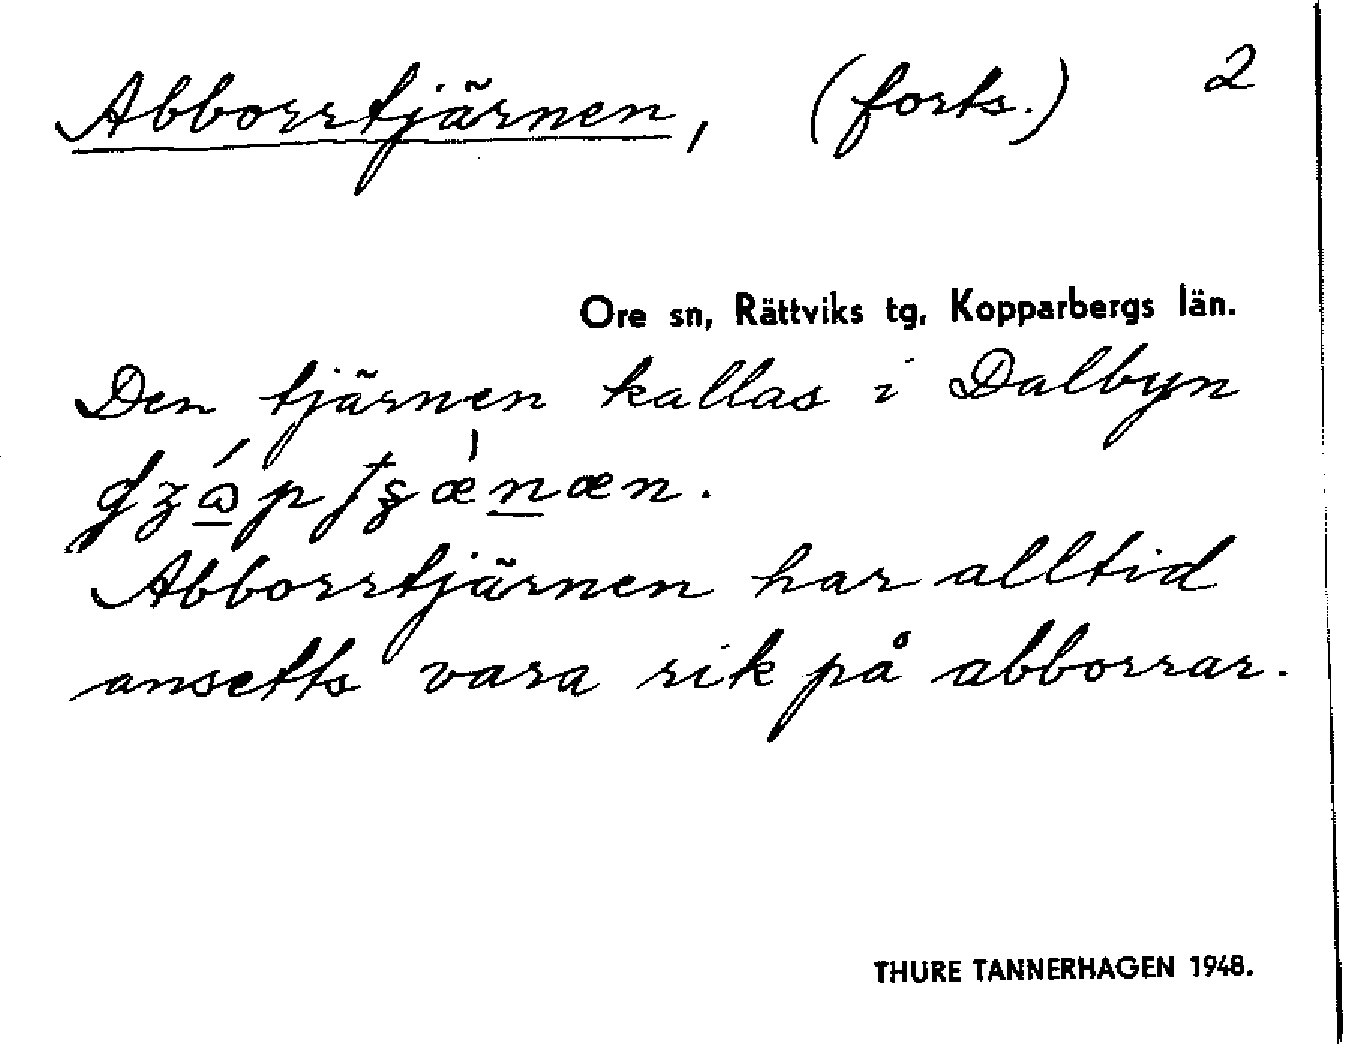 Abborrtjärnen, (forts.) 2
Ore sn, Rättviks tg, Kopparbergs län.
Den tjärnen kallas i Dalbyn
Abborrtjärnen har alltid
ansetts vara rik på abborrar.
THURE TANNERHAGEN 1948.